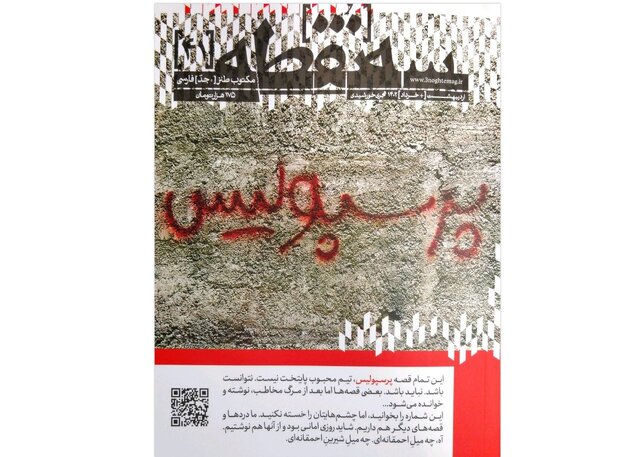 سه‌نقطه
[۴۷]
مکتوب طنز[، جدّ] فارسی
۱۷۵ هزار تومان
www.3noghtemag.ir
اردیبهشت [+ خرداد] ۱۴۰۲ هجری خورشیدی
پرسپولیس
این تمام قصه پرسپولیس، تیم محبوب پایتخت نیست. نتوانست
باشد. نباید باشد. بعضی قصه‌ها اما بعد از مرگ مخاطب، نوشته و
خوانده می‌شود...
این شماره را بخوانید، اما چشم‌هایتان را خسته نکنید. ما دردها و
قصه‌های دیگر هم داریم. شاید روزی امانی بود و از آنها هم نوشتیم.
آه، چه میل احمقانه‌ای. چه میل شیرینِ احمقانه‌ای.